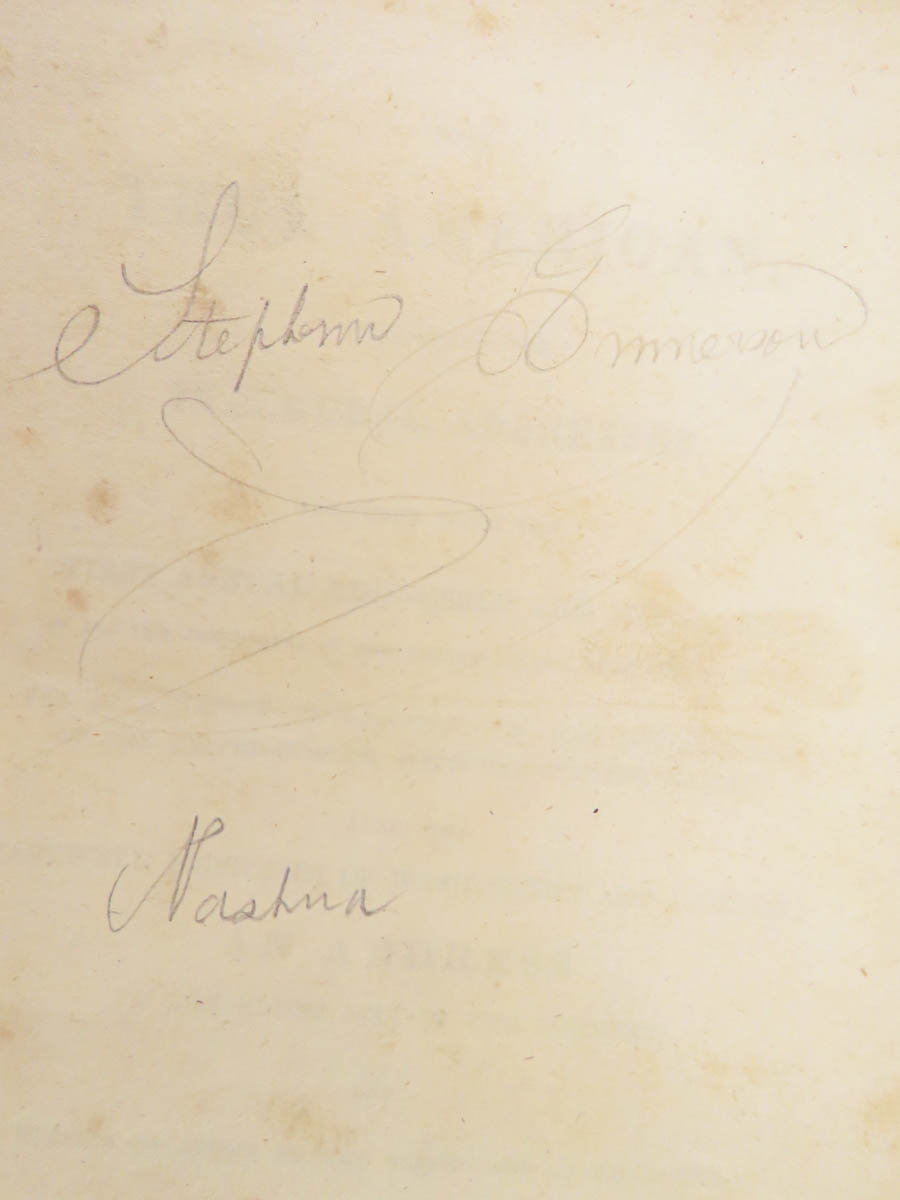 Stephen Emmerson
Nashua